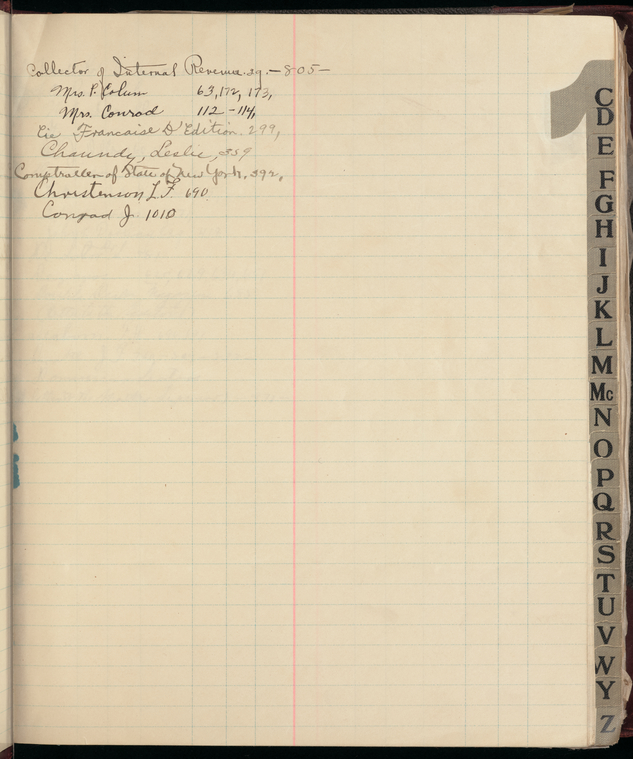 Collector of Internal Revenue. 39. - 805 -
Mrs. P. Colum 63, 172, 173,
Mrs. Conrad 112 - 114,
Cie Francaise D'Edition. 299,
Chaundy, Leslie, 359
Comptroller of State of New York, 392,
Christenson L.F. 690
Conrad J. 1010
C
D
E
F
G
H
I
J
K
L
M
Mc
N
O
P
Q
R
S
T
U
V
W
Y
Z